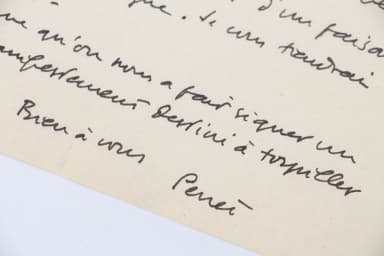 d'un faisa
que. Je vous tiendrai
ue qu'on nous a fait signer un
anifestement destiné à torpiller
Bien à vous
Perec